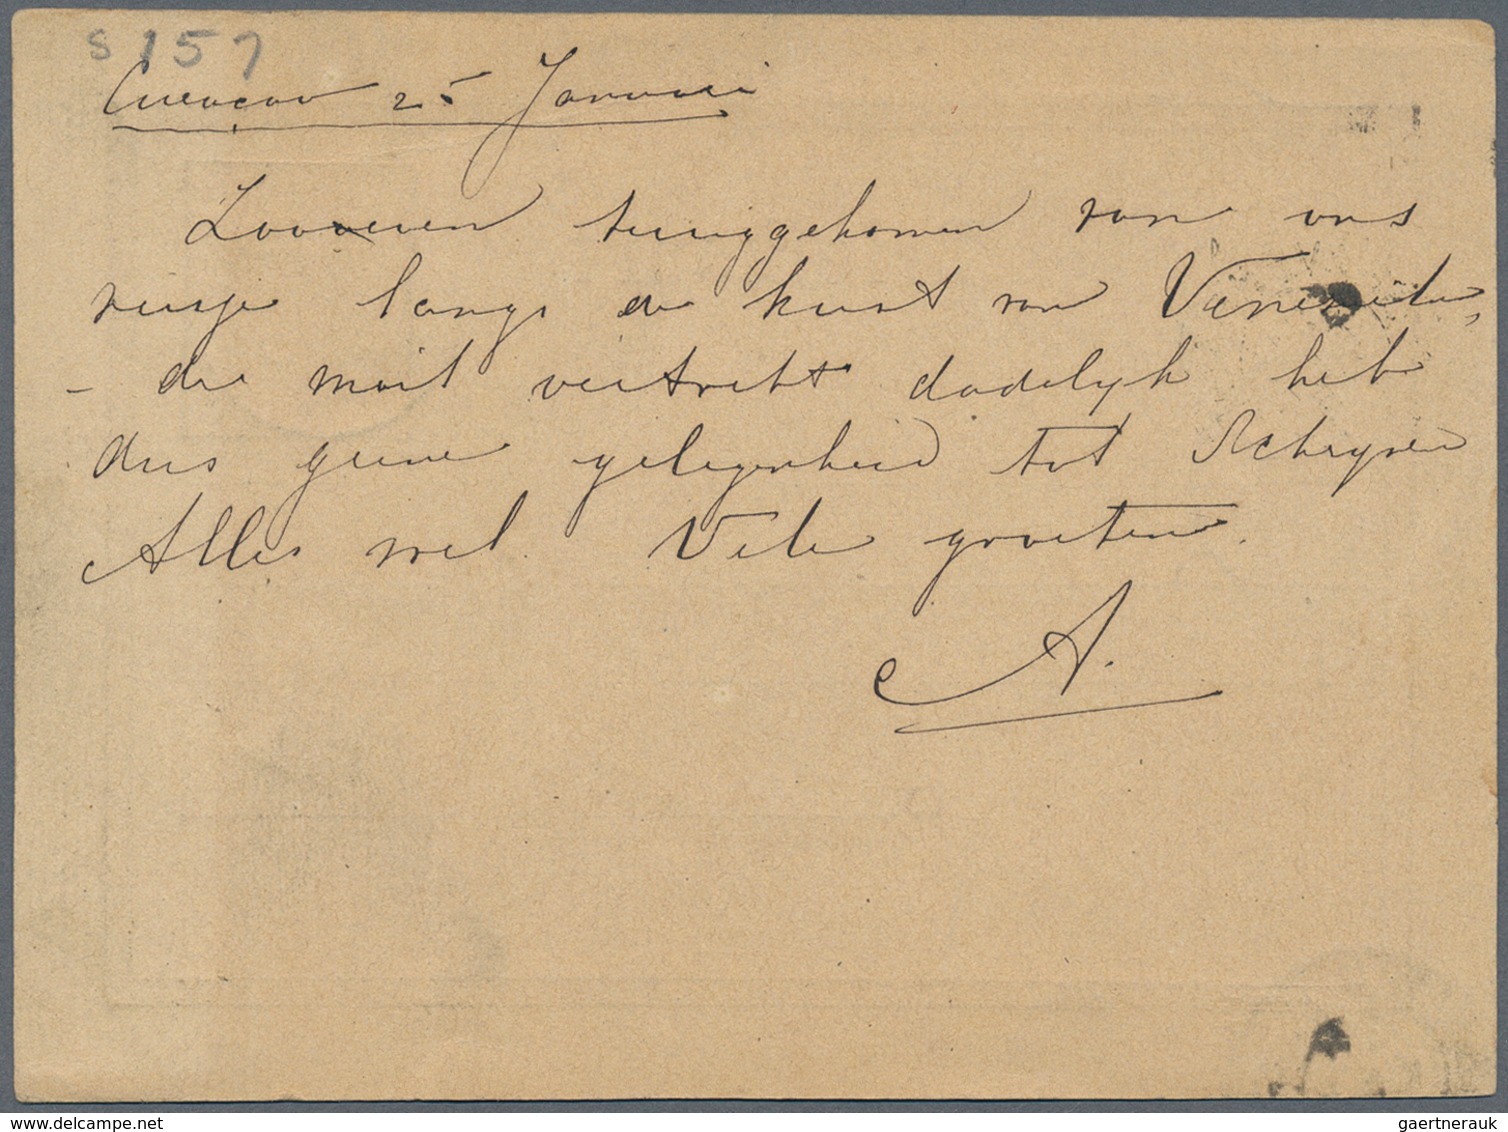 S 157
Curaçao 25 Januari
Zooeven teruggekomen van ons
reisje langs de kust van Venezuela,
- de mail vertrekt dadelijk heb
dus geene gelegenheid tot schrijven
Alles wel. Vele groeten.
A.
gaertnerauk @ delcampe.net